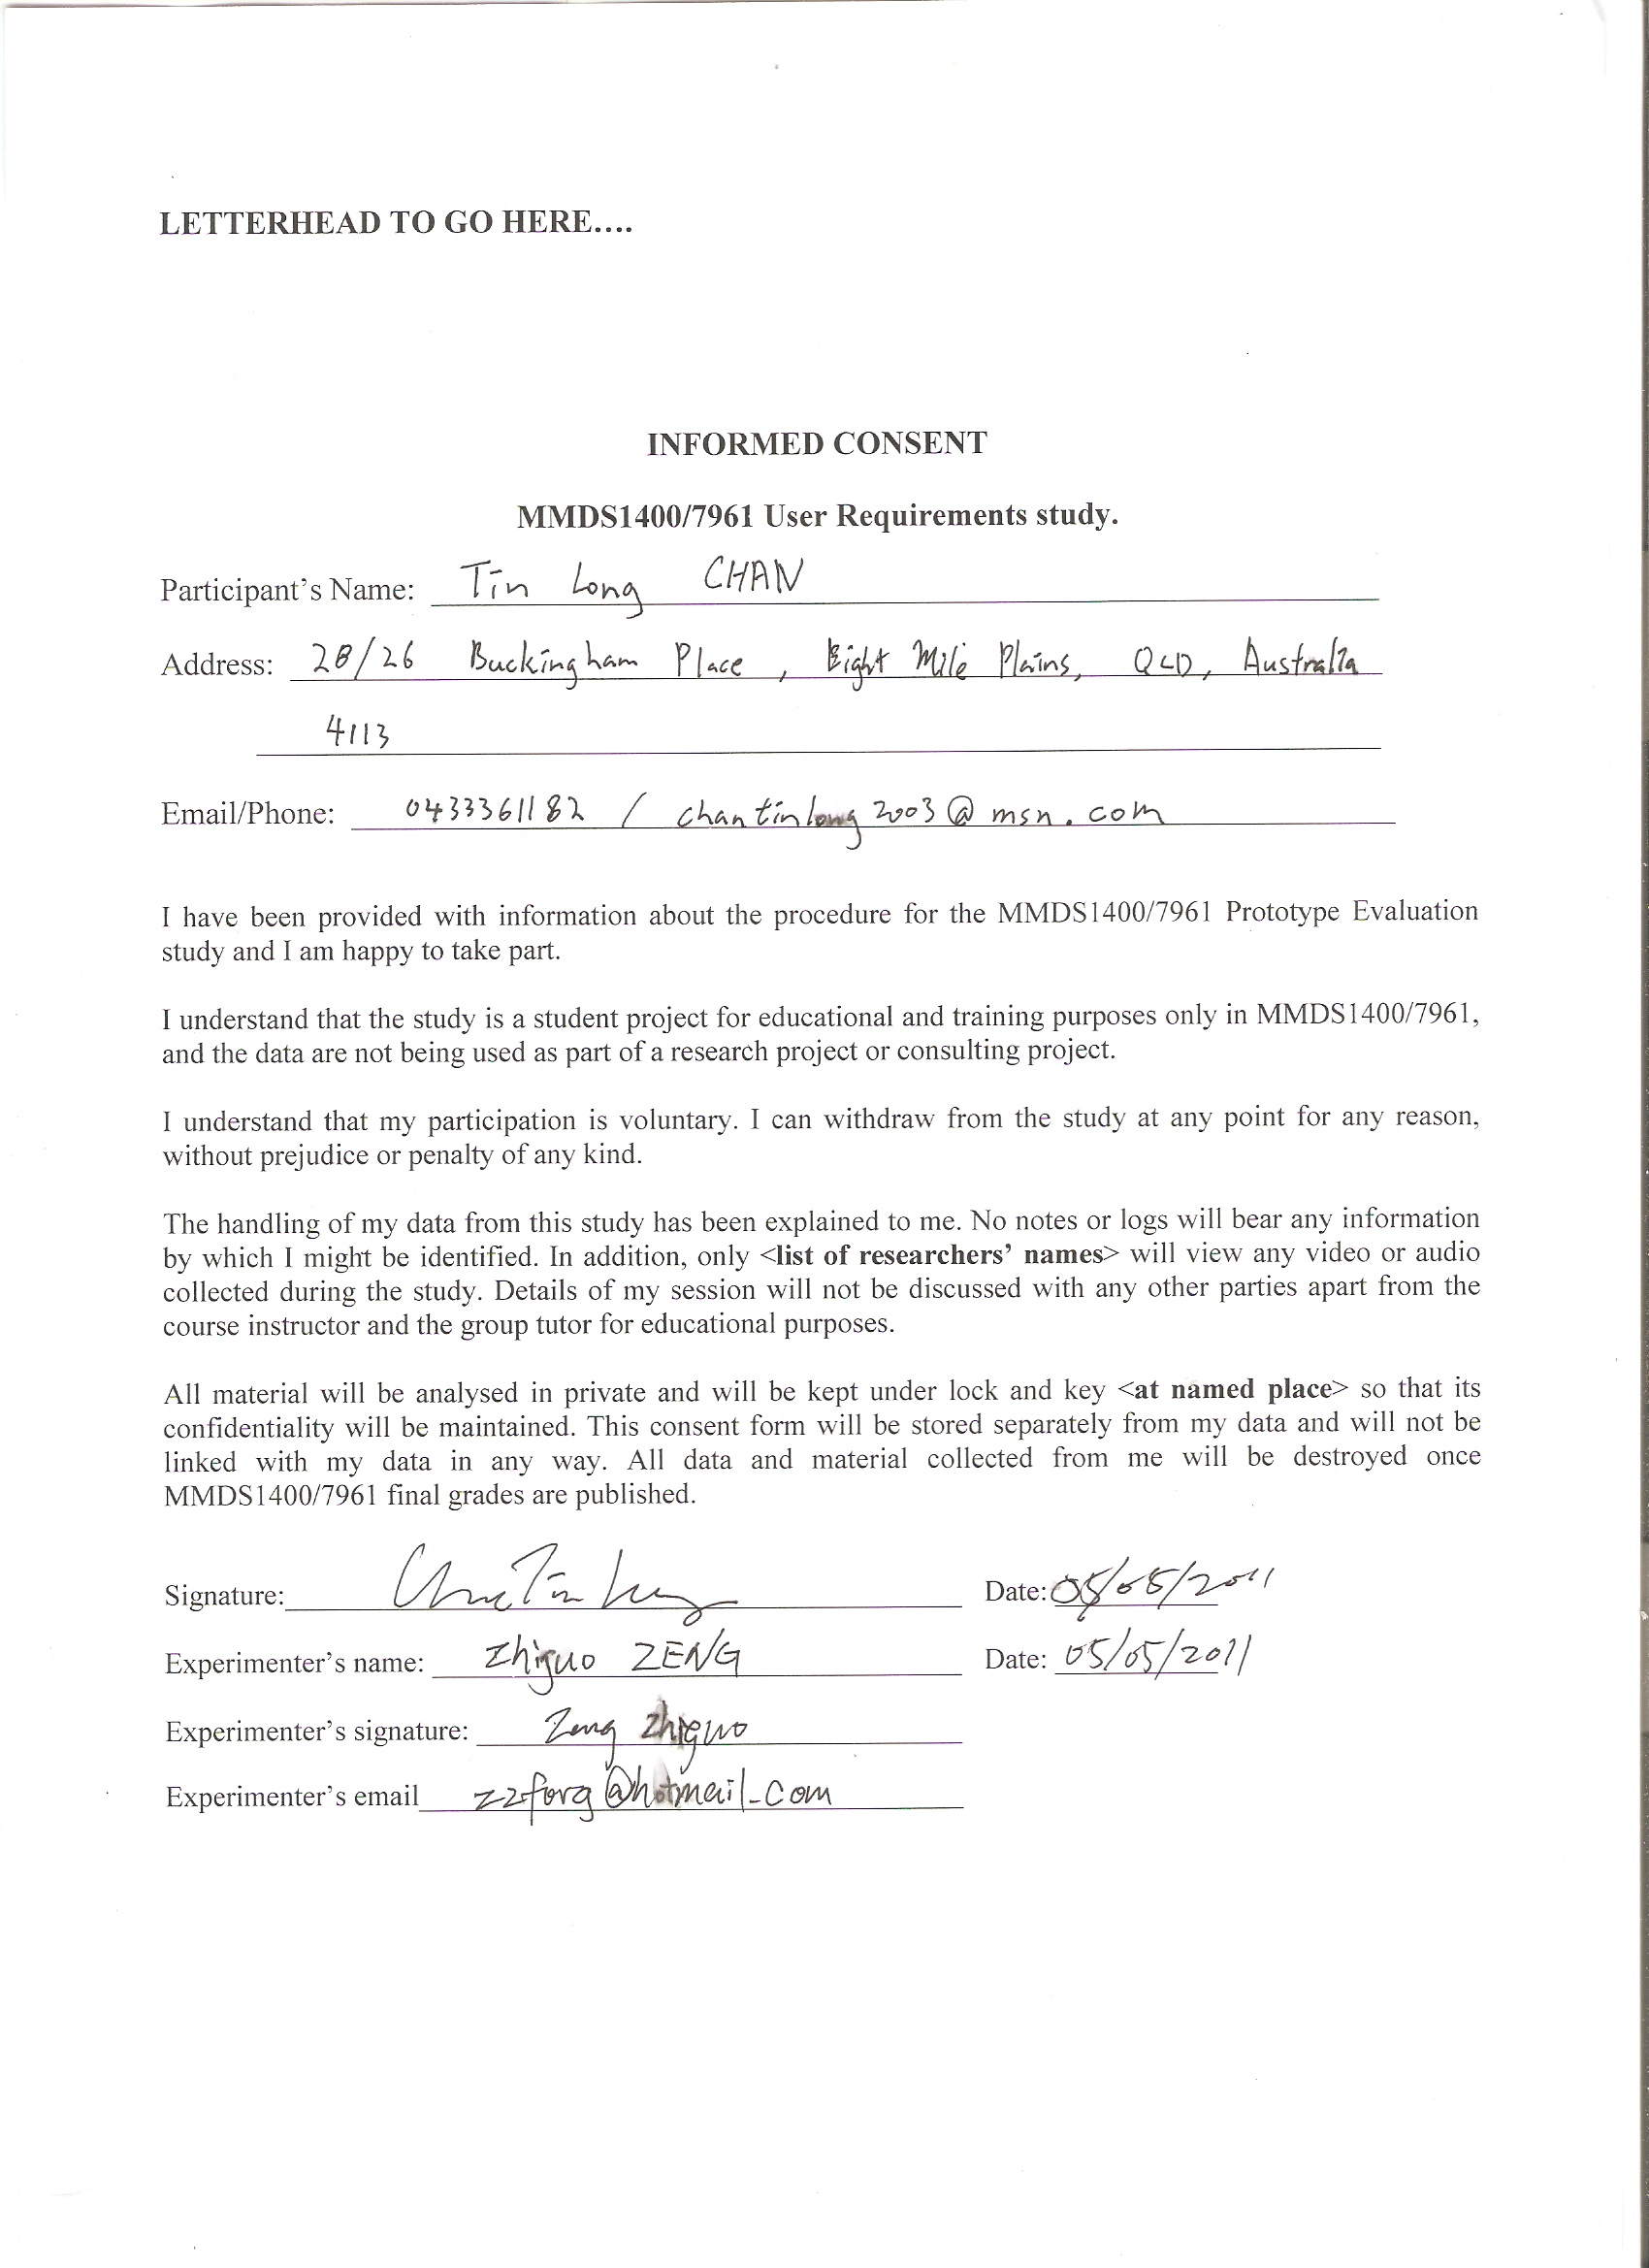 LETTERHEAD TO GO HERE....
INFORMED CONSENT
MMDS1400/7961 User Requirements study.
Participant's Name: Tin Long CHAN
Address: 28/26 Buckingham Place, Eight Mile Plains, QLD, Australia
4113
Email/Phone: 0433361182 / chantinlong2003@msn.com
I have been provided with information about the procedure for the MMDS1400/7961 Prototype Evaluation
study and I am happy to take part.
I understand that the study is a student project for educational and training purposes only in MMDS1400/7961,
and the data are not being used as part of a research project or consulting project.
I understand that my participation is voluntary. I can withdraw from the study at any point for any reason,
without prejudice or penalty of any kind.
The handling of my data from this study has been explained to me. No notes or logs will bear any information
by which I might be identified. In addition, only <list of researchers' names> will view any video or audio
collected during the study. Details of my session will not be discussed with any other parties apart from the
course instructor and the group tutor for educational purposes.
All material will be analysed in private and will be kept under lock and key <at named place> so that its
confidentiality will be maintained. This consent form will be stored separately from my data and will not be
linked with my data in any way. All data and material collected from me will be destroyed once
MMDS1400/7961 final grades are published.
Signature: Date: 05/05/2011
Experimenter's name: Zhiguo ZENG Date: 05/05/2011
Experimenter's signature: Zeng Zhiguo
Experimenter's email